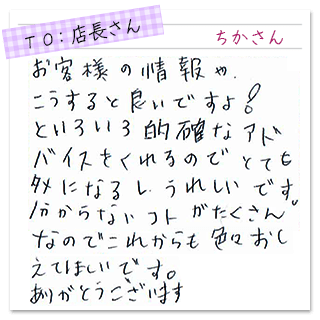 TO:店長さん
ちかさん
お客様の情報や、
こうすると良いですよ!
といろいろ的確なアド
バイスをくれるのでとても
タメになるし、うれしいです。
分からないコトがたくさん
なのでこれからも色々おし
えてほしいです。
ありがとうございます